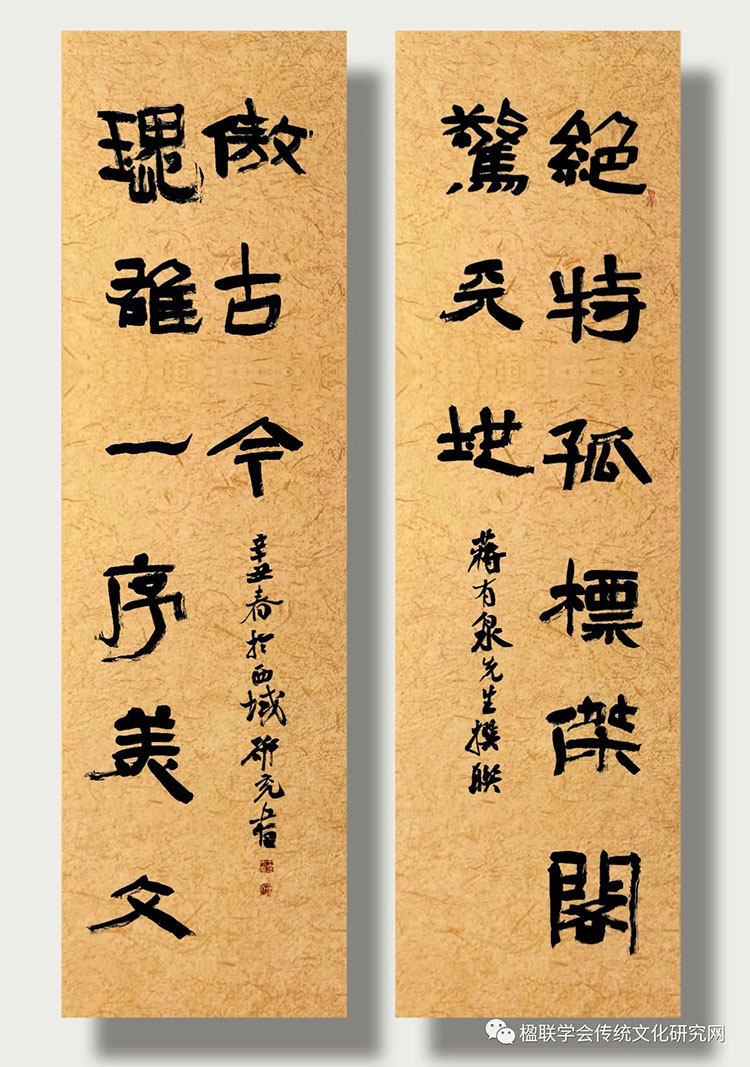 絶特孤標傑閣
驚天地
蔣有泉先生撰聯
瑰雄一序美文
傲古今
辛丑春於西域
楹联学会传统文化研究网